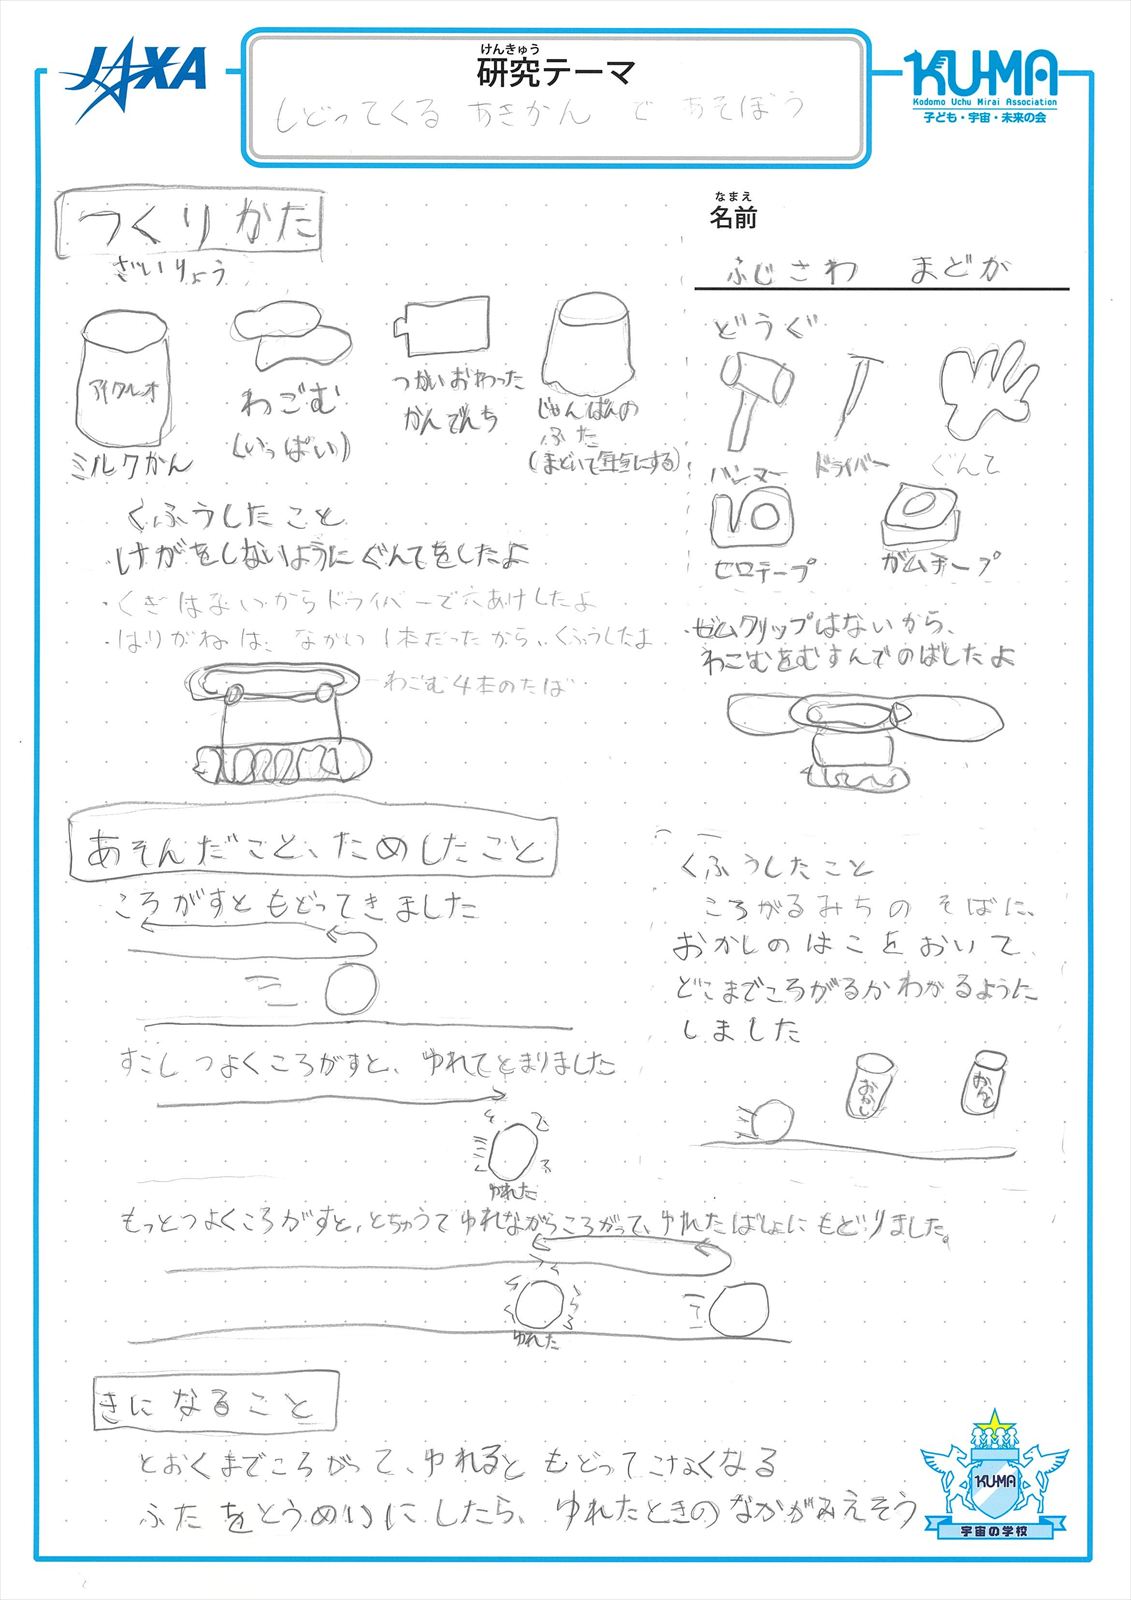 JAXA
けんきゅう
研究テーマ
もどってくる あきかん で あそぼう
KU-MA
Kodomo Uchu Mirai Association
子ども・宇宙・未来の会
つくりかた
ざいりょう
なまえ
名前
ふじさわ まどか
アイクルオ
ミルクかん
わごむ
(いっぱい)
つかいおわった
かんでんち
じゃんぱんの
ふた
どうぐ
ハンマー
ドライバー
ぐんて
セロテープ
ガムテープ
くふうしたこと
けがをしないようにぐんてをしたよ
・くぎはないからドライバーで穴あけしたよ
・はりがねは、ながい1本だったから、くふうしたよ
わごむ4本のたば
・ゼムクリップはないから、
わごむをむすんでのばしたよ
あそんだこと、ためしたこと
ころがすともどってきました
すこしつよくころがすと、ゆれてとまりました
ゆれた
もっとつよくころがすと、とちゅうでゆれながらころがって、ゆれたばしょにもどりました。
ゆれた
くふうしたこと
ころがるみちのそばに、
おかしのはこをおいて
どこまでころがるかわかるように
しました
おかし
きになること
とおくまでころがって、ゆれるともどってこなくなる
ふたをとうめいにしたら、ゆれたときのなかがみえそう
KU-MA
宇宙の学校